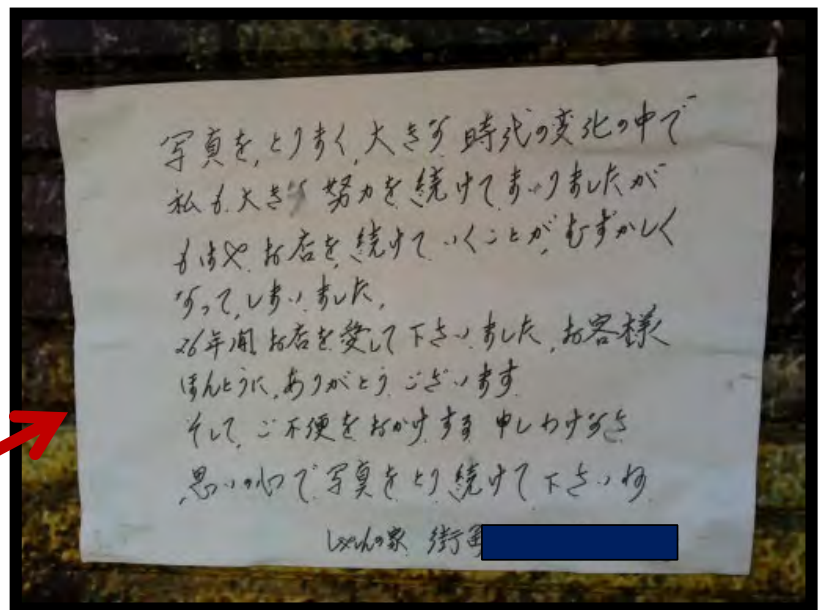 写真を、とりまく、大きな 時代の変化の中で
私も、大きな 努力を続けてまいりましたが
もはや、お店を、続けて いくことが、むずかしく
なって、しまいました、
26年間 お店を愛して下さいました、お客様
ほんとうに、ありがとう ございます
そして、ご不便を おかけする 申しわけなさ
思いの心で 写真を とり 続けて 下さいね
しゃしんの家 街